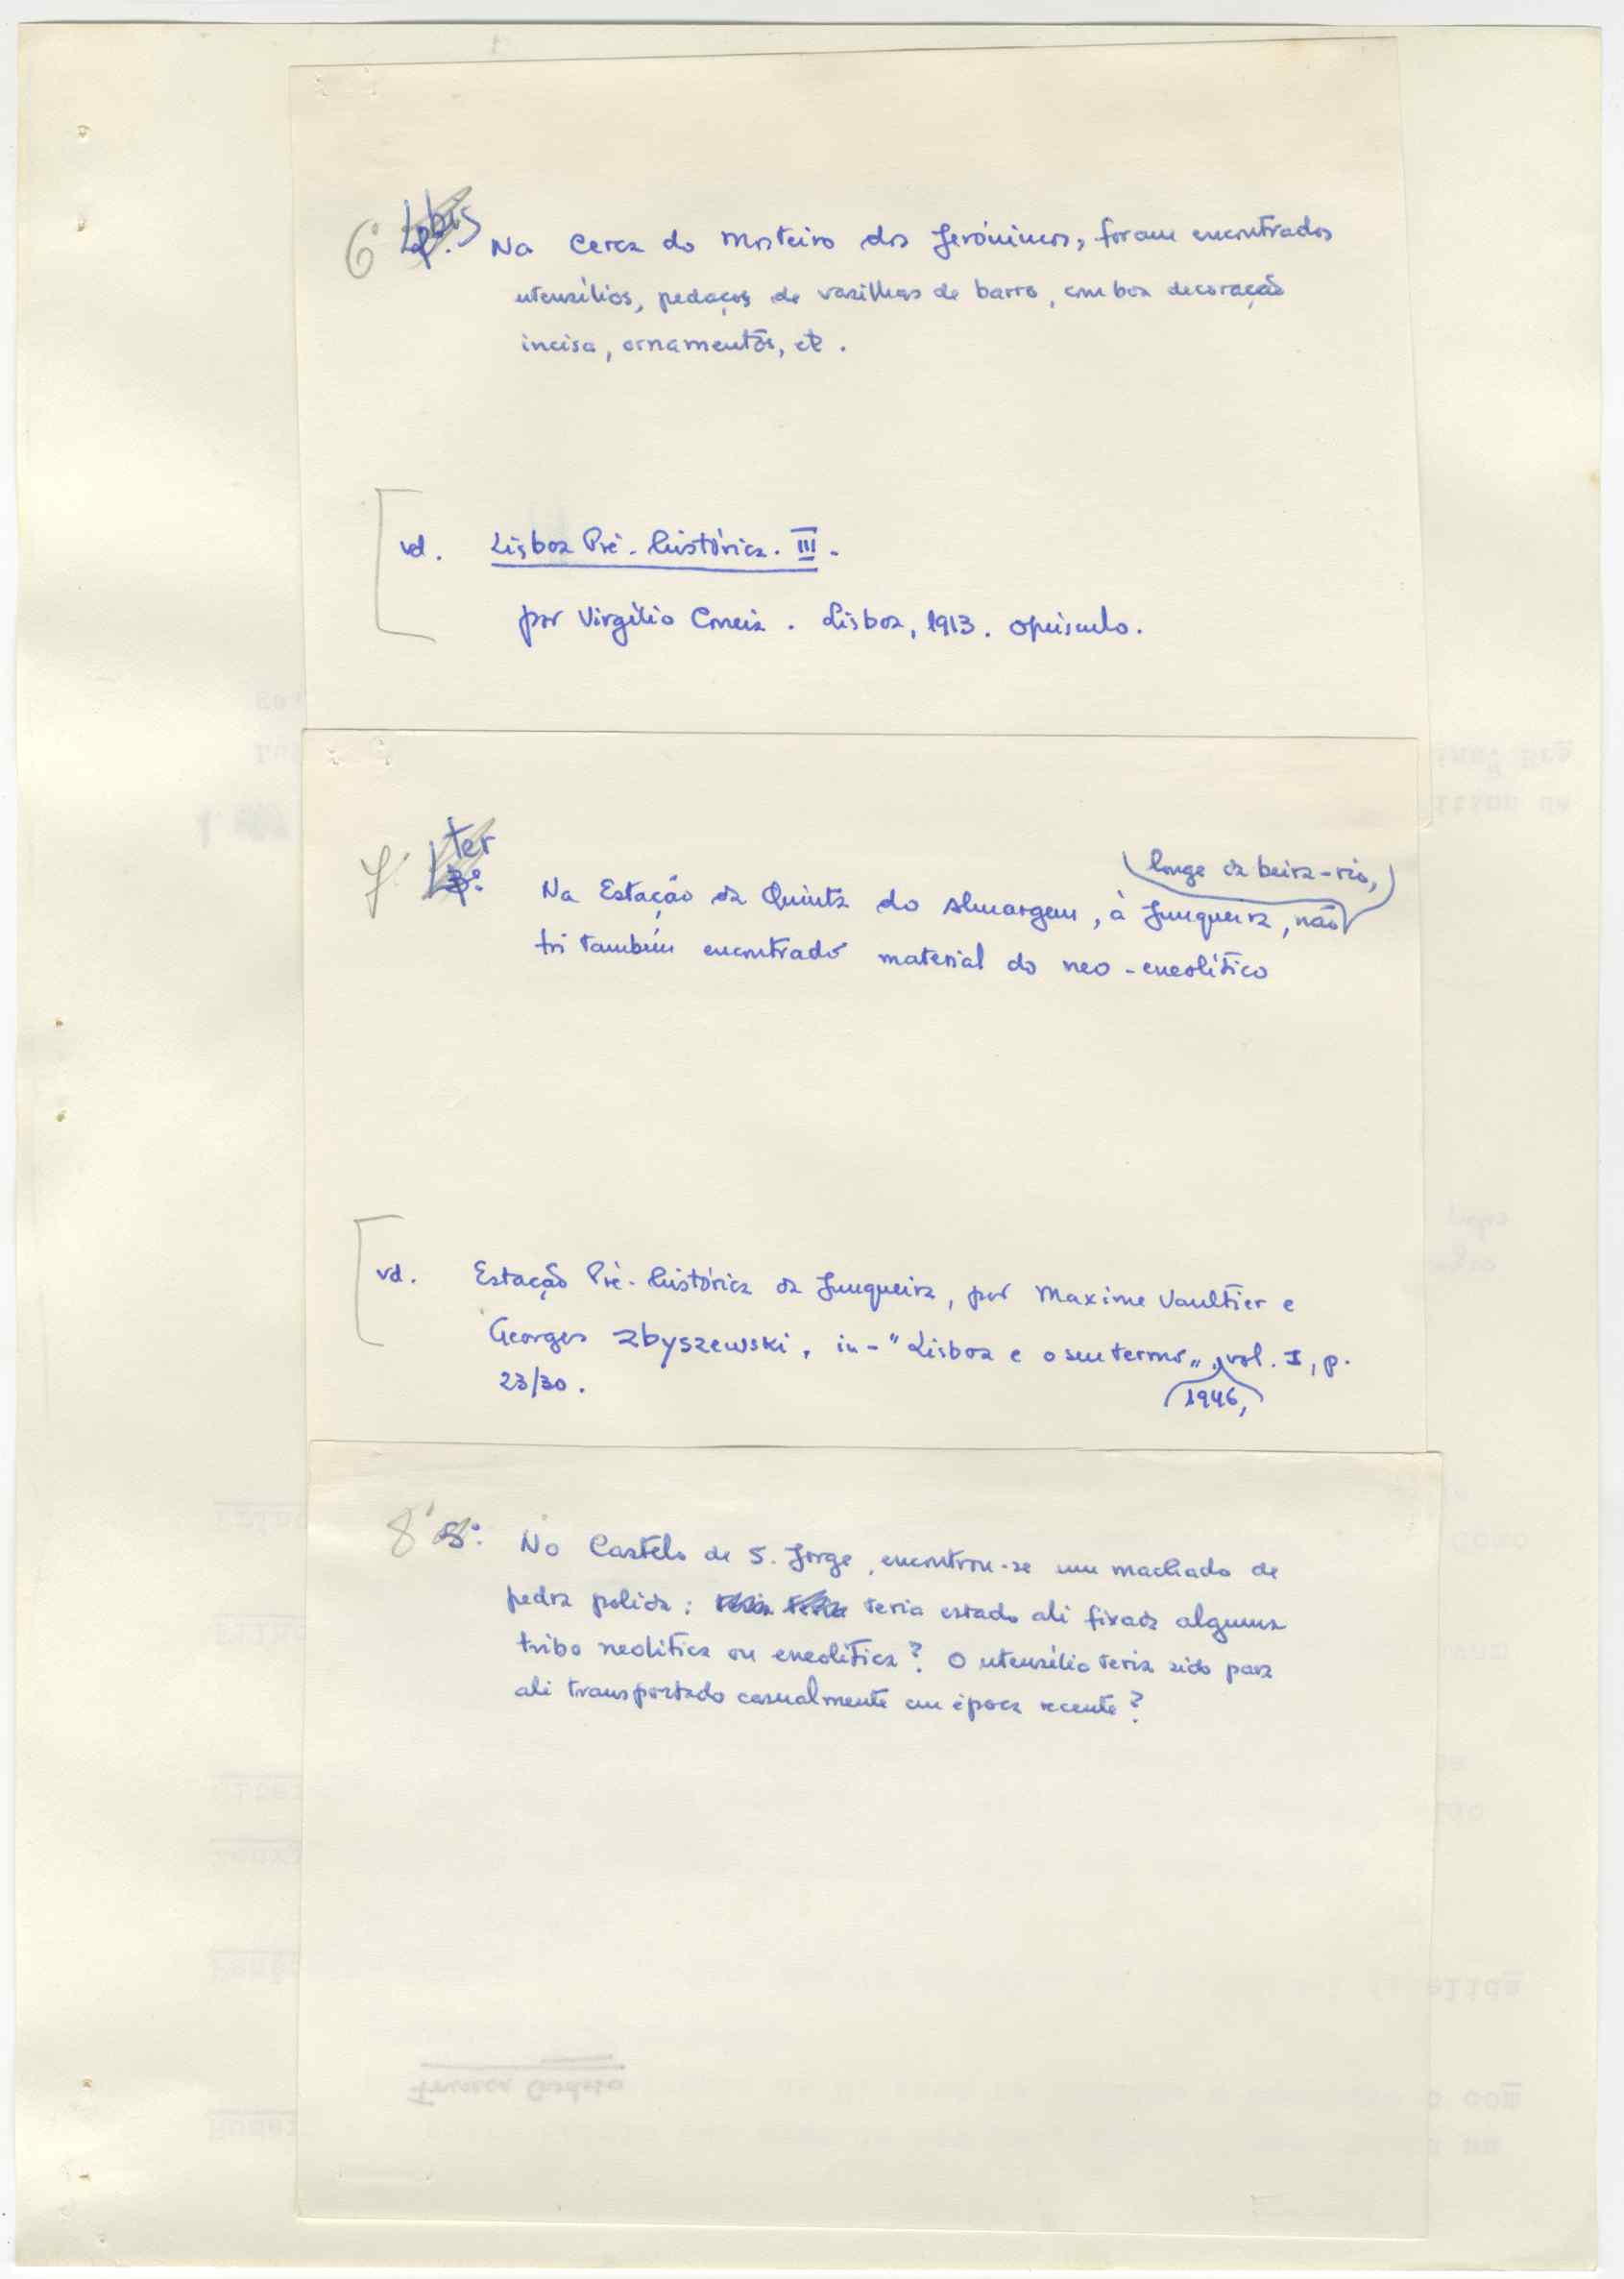 6º bis Na Cerca do Mosteiro dos Jerónimos, foram encontrados
utensílios, pedaços de vasilhas de barro, com boa decoração
incisa, ornamentos, etc.
vd. Lisboa Pré-histórica. III.
por Virgílio Correia. Lisboa, 1913. opúsculo.
7º ter
longe da beira-rio,
Na Estação da Quinta do Almargem, à Junqueira, não
foi também encontrado material do neo-eneolítico
vd. Estação Pré-histórica da Junqueira, por Maxime Vaultier e
Georges Zbyszewski, in-"Lisboa e o seu termo", vol. I, p.
1946,
23/30.
8º 5º. No Castelo de S. Jorge, encontrou-se um machado de
pedra polida: teria estado ali fixada alguma
tribo neolítica ou eneolítica? O utensílio teria sido para
ali transportado casualmente em época recente?